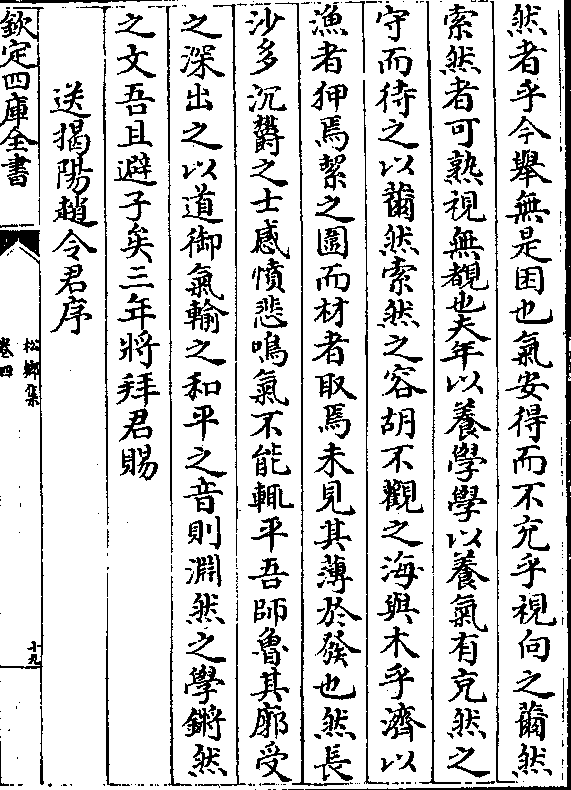 然者乎今舉無是困也氣安得而不充乎視向之薾然
索然者可熟視無覩也夫年以養學學以養氣有充然之
守而待之以薾然索然之容胡不觀之海與木乎濟以
漁者狎焉絜之園而材者取焉未見其薄於發也然長
沙多沉欝之士感憤悲鳴氣不能輒平吾師魯其廓受
之深出之以道御氣輸之和平之音則淵然之學鏘然
之文吾且避子矣三年將拜君賜
送揭陽趙令君序
欽定四庫全書
松鄉集
卷四
十九